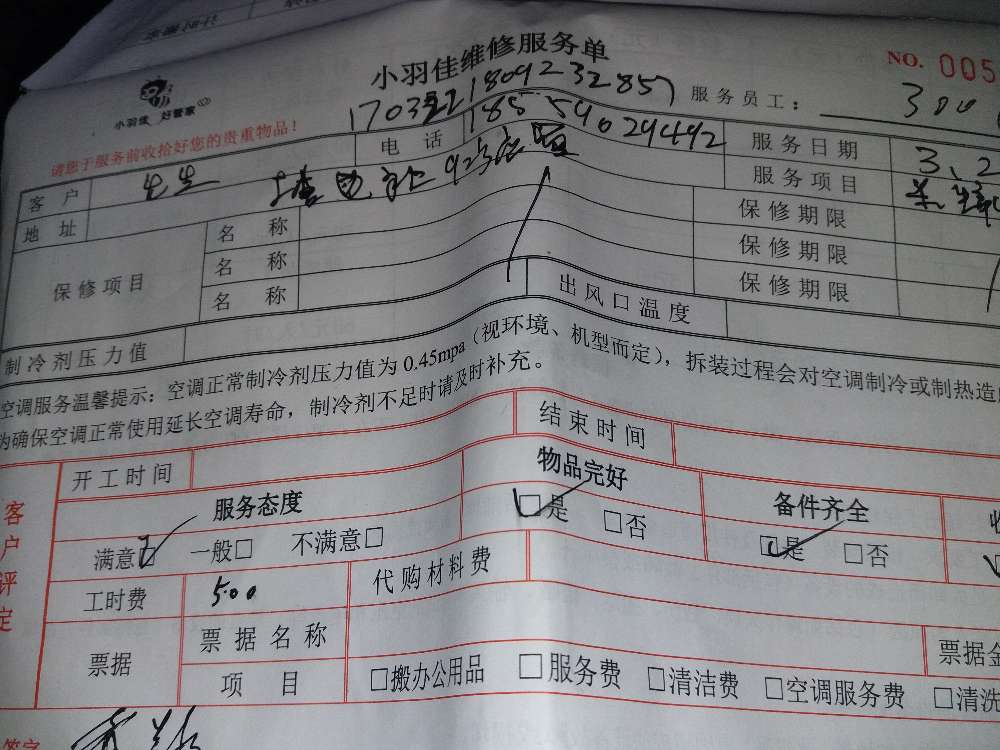 小羽佳维修服务单
NO. 005
小羽佳 好管家
18092332857
服务员工：
300
请您于服务前收拾好您的贵重物品！
客户
先生
电话
服务日期
3.2
地址
服务项目
保修项目
名称
保修期限
名称
保修期限
名称
保修期限
制冷剂压力值
出风口温度
空调服务温馨提示：空调正常制冷剂压力值为0.45mpa（视环境、机型而定），拆装过程会对空调制冷或制热造
为确保空调正常使用延长空调寿命，制冷剂不足时请及时补充。
客户评定
开工时间
结束时间
服务态度
物品完好
备件齐全
满意□ 一般□ 不满意□
□是 □否
□是 □否
工时费
500
代购材料费
票据
票据名称
票据金
项目
□搬办公用品 □服务费 □清洁费 □空调服务费 □清洗